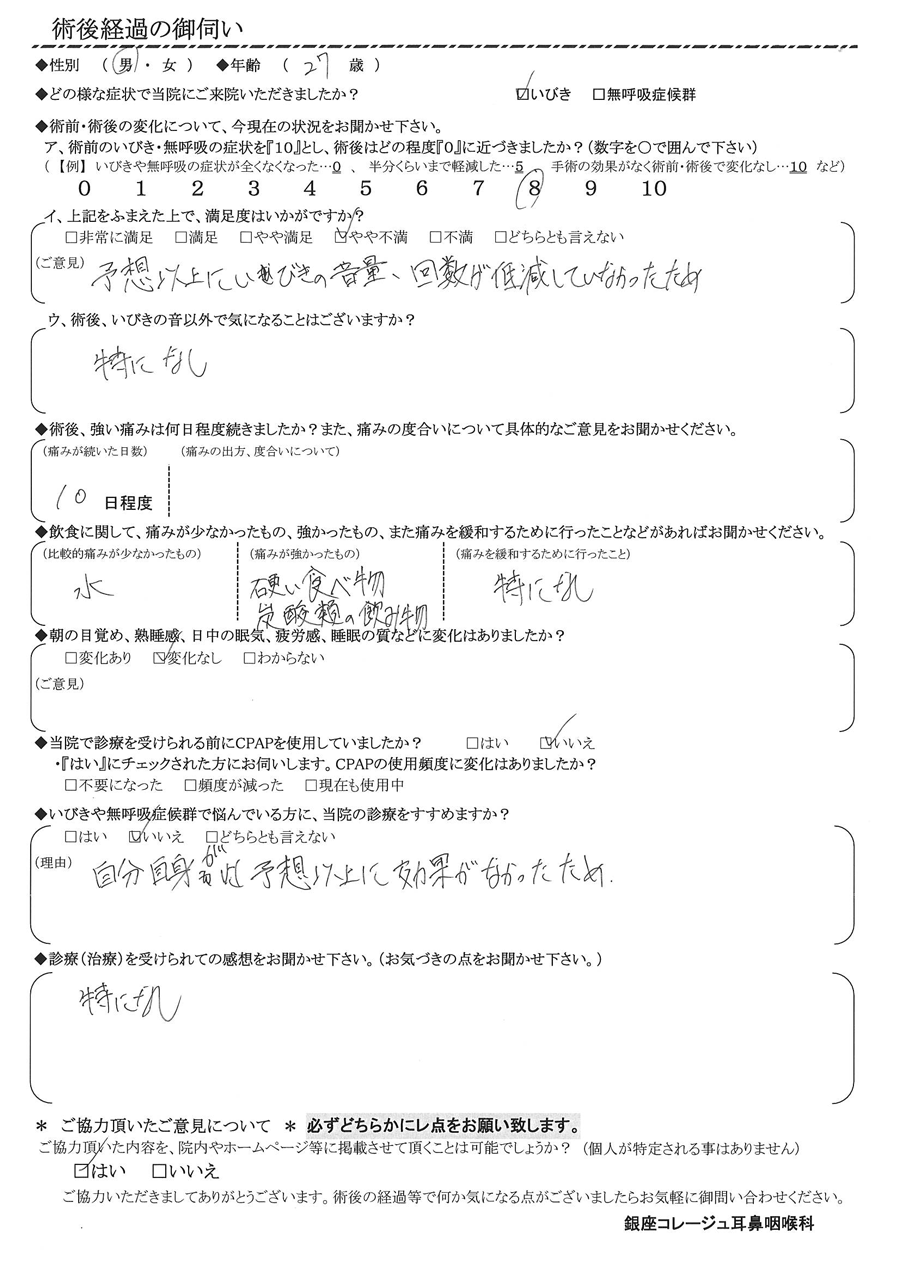 術後経過の御伺い
◆性別 （ 男 ・ 女 ） ◆年齢 （ 27 歳 ）
◆どの様な症状で当院にご来院いただきましたか？ ☑いびき □無呼吸症候群
◆術前・術後の変化について、今現在の状況をお聞かせ下さい。
ア、術前のいびき・無呼吸の症状を『10』とし、術後はどの程度『0』に近づきましたか？（数字を〇で囲んで下さい）
（【例】 いびきや無呼吸の症状が全くなくなった…0 、 半分くらいまで軽減した…5 、 手術の効果がなく術前・術後で変化なし…10 など）
0 1 2 3 4 5 6 7 8 9 10
イ、上記をふまえた上で、満足度はいかがですか？
□非常に満足 □満足 □やや満足 ☑やや不満 □不満 □どちらとも言えない
（ご意見） 予想以上にいびきの音量、回数が低減していなかったため
ウ、術後、いびきの音以外で気になることはございますか？
特になし
◆術後、強い痛みは何日程度続きましたか？また、痛みの度合いについて具体的なご意見をお聞かせください。
（痛みが続いた日数） （痛みの出方、度合いについて）
10 日程度
◆飲食に関して、痛みが少なかったもの、強かったもの、また痛みを緩和するために行ったことなどがあればお聞かせください。
（比較的痛みが少なかったもの） （痛みが強かったもの） （痛みを緩和するために行ったこと）
水 硬い食べ物 特になし
炭酸類の飲み物
◆朝の目覚め、熟睡感、日中の眠気、疲労感、睡眠の質などに変化はありましたか？
□変化あり ☑変化なし □わからない
（ご意見）
◆当院で診療を受けられる前にCPAPを使用していましたか？ □はい ☑いいえ
・『はい』にチェックされた方にお伺いします。CPAPの使用頻度に変化はありましたか？
□不要になった □頻度が減った □現在も使用中
◆いびきや無呼吸症候群で悩んでいる方に、当院の診療をすすめますか？
□はい ☑いいえ □どちらとも言えない
（理由） 自分自身が予想以上に効果がなかったため.
◆診療（治療）を受けられての感想をお聞かせ下さい。（お気づきの点をお聞かせ下さい。）
特になし
＊ ご協力頂いたご意見について ＊ 必ずどちらかにレ点をお願い致します。
ご協力頂いた内容を、院内やホームページ等に掲載させて頂くことは可能でしょうか？ （個人が特定される事はありません）
☑はい □いいえ
ご協力いただきましてありがとうございます。術後の経過等で何か気になる点がございましたらお気軽に御問い合わせください。
銀座コレージュ耳鼻咽喉科